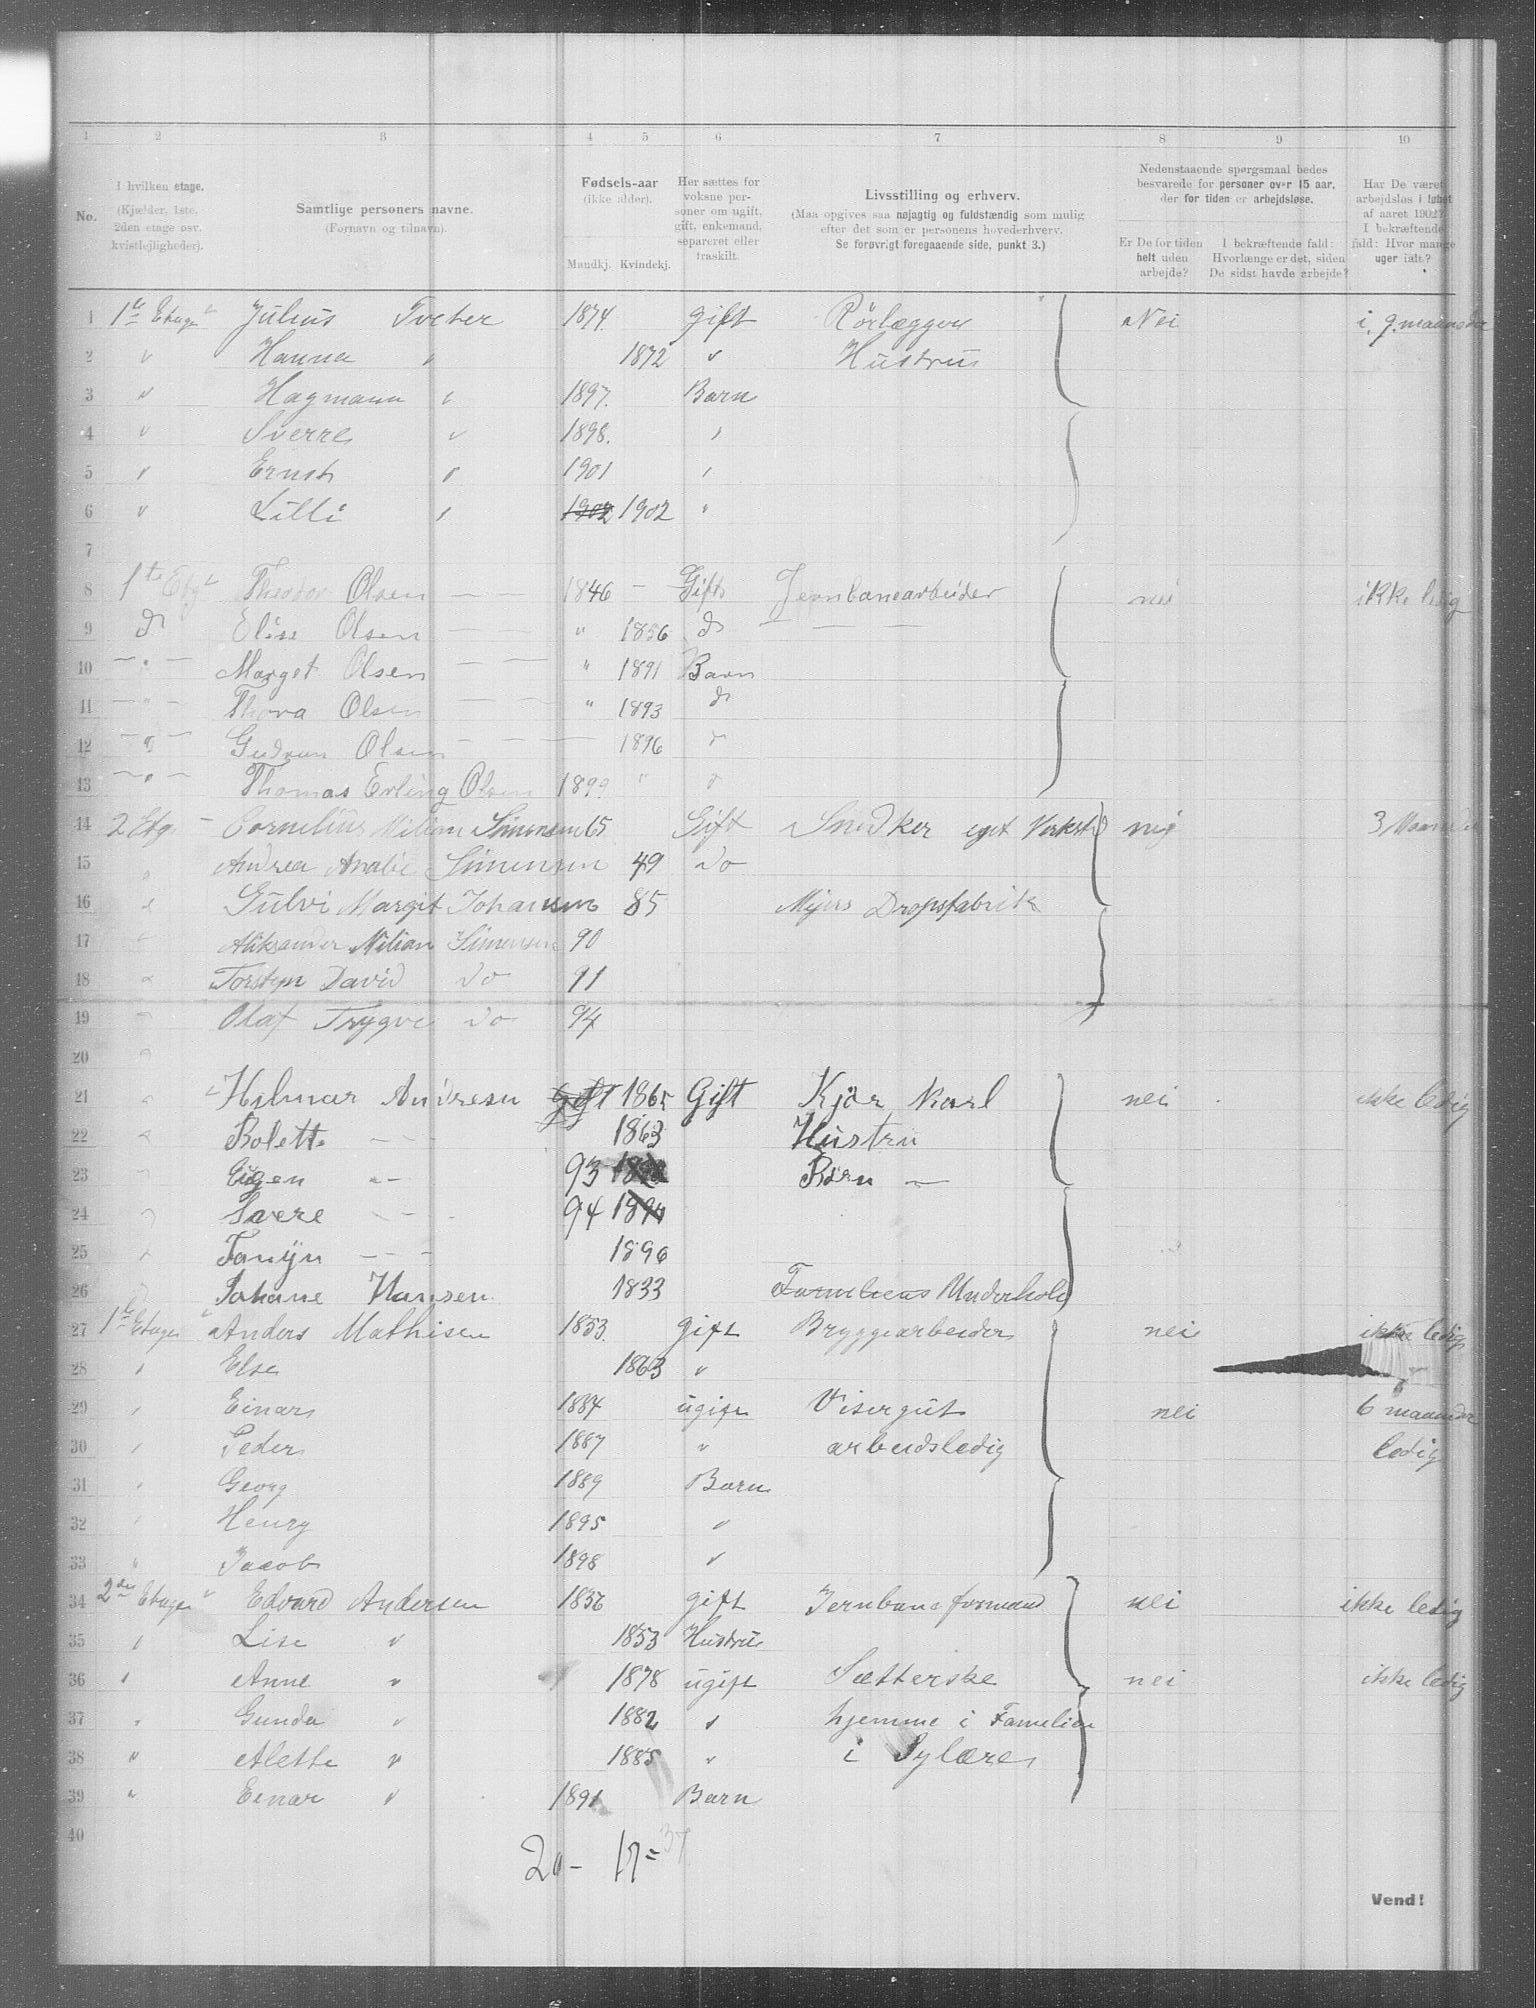 1 2 3 4 5 6 7 8 9 10
No.
I hvilken etage. (Kjælder, 1ste, 2den etage osv. kvistlejligheder).
Samtlige personers navne. (Fornavn og tilnavn).
Fødsels-aar (ikke alder). Mandkj. Kvindekj.
Her sættes for voksne personer om ugift, gift, enkemand, separeret eller fraskilt.
Livsstilling og erhverv. (Maa opgives saa nøjagtig og fuldstændig som mulig efter det som er personens hovederhverv. Se forøvrigt foregaaende side, punkt 3.)
Nedenstaaende spørgsmaal bedes besvarede for personer over 15 aar, der for tiden er arbejdsløse.
Er De for tiden helt uden arbejde?
I bekræftende fald: Hvorlænge er det, siden De sidst havde arbejde?
Har De været arbejdsløs i løbet af aaret 1902? I bekræftende fald: Hvor mange uger ialt?
1 1ste Etage Julius Tveter 1874. gift Rörlægger Nei i 9. maaneder
2 " Hanna " 1872 " Hustru
3 " Hagmann " 1897. Barn
4 " Sverre " 1898. "
5 " Ernst " 1901 "
6 " Lilli " 1902 1902 "
7
8 1te Etg Theodor Olsen 1846 - Gift Jernbanearbeider nei ikke ledig
9 do Elise Olsen " 1856 do
10 - " - Marget Olsen " 1891 Barn
11 - " - Thora Olsen " 1893 do
12 - " - Gudrun Olsen 1896 "
13 - " - Thomas Erling Olsen 1899 " "
14 2 Etg. Cornelius Milian Simensen 65 Gift Snedker eget Verksted nei 3 Maaneder
15 " Andrea Amalie Simensen 49 do
16 " Gulvi Margit Johansen 85 Dropsfabrik
17 " Aliksander Milian Simensen 90
18 " Torstein David do 91
19 " Olaf Trygve do 94
20 "
21 " Hilmar Andresen gift 1865 Gift Kjør Karl nei ikke ledig
22 " Bolette - - - 1863 Hustru
23 " Eigen - - 93 Børn -
24 " Svere - - - 94 1894
25 " Fanyn - - - 1896
26 " Johane Hansen 1833 Fameliens Underhold
27 1ste Etage Anders Mathisen 1853. gift Bryggearbeider nei ikke ledig
28 " Else 1863 "
29 " Einar 1884 ugift Visergut nei 6 maaneder
30 " Peder 1887 " arbeidsledig ledig
31 " Georg 1889 Barn
32 " Henry 1895 "
33 " Jacob 1898 "
34 2den Etage Edvard Andersen 1856 gift Jernbaneformand nei ikke ledig
35 " Lise " 1853 Hustru
36 " Anne " 1878 ugift Sætterske nei ikke ledig
37 " Gunda " 1882 " hjemme i Famelien
38 " Alette " 1885 " i Sylære
39 " Einar " 1891 Barn
40
20 - 17 = 37
Vend!